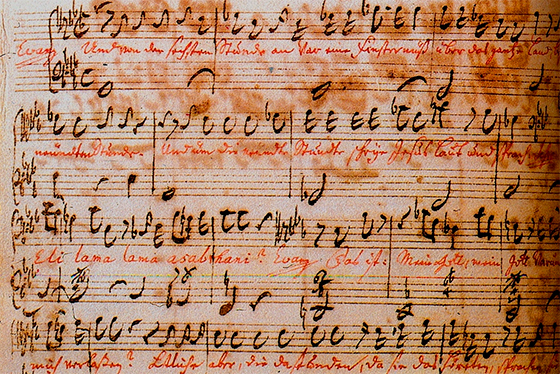 Evang. Und von der sechsten Stunde an war eine Finsternüß über das gantze Land
neundten Stunde. Und um die neundte Stunde schrye Jesus laut und sprach
Eli lama lama asabthani? Evang. Das ist: Mein Gott, mein Gott warum
mich verlaßen? Etliche aber, die da stunden, da sie das höreten, sprachen